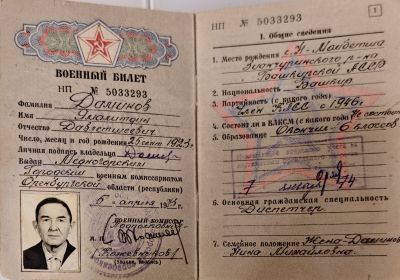 ВОЕННЫЙ БИЛЕТ
НП № 5033293
Фамилия Даминов
Имя
Отчество Давлетшеевич
Число, месяц и год рождения 25 1923
Личная подпись владельца
Выдан Медногорским
Городским военным комиссариатом
Оренбургской области (республики)
5 апреля
ВОЕННЫЙ КОМИССАР
НП № 5033293
1
I. Общие сведения
1. Место рождения
района
Башкирской АССР
2. Национальность Башкир
3. Партийность (с какого года)
Член КПСС с 1946 г.
4. Состоит ли в ВЛКСМ (с какого года) Не состоит
5. Образование Окончил 6 классов
6. Основная гражданская специальность
Диспетчер
7. Семейное положение Жена - Даминова
Нина Михайловна